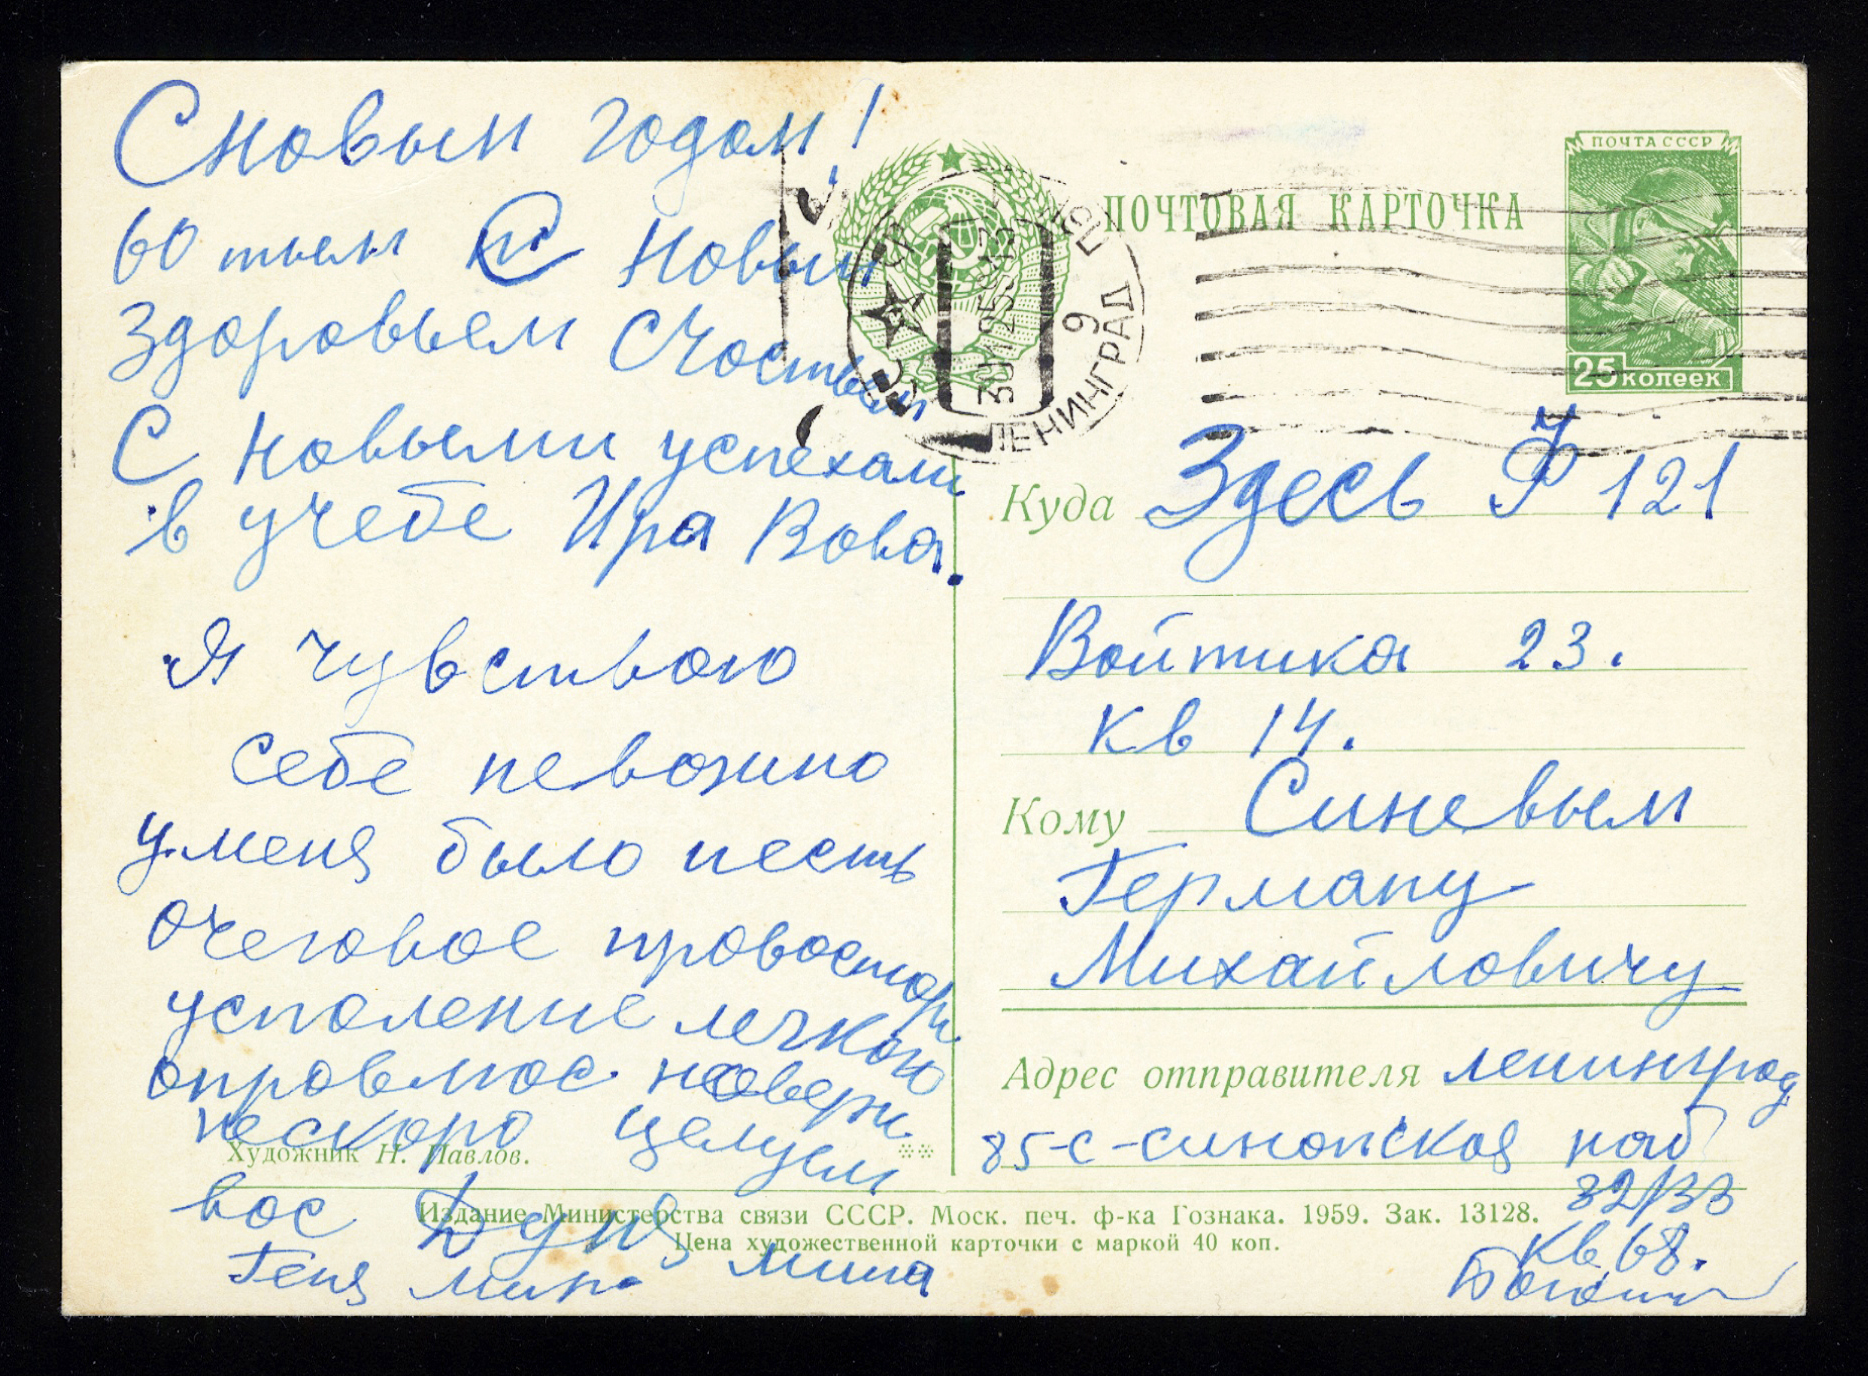 С новым годом!
60 тым С Новым
Здоровьем Счостьем
С новыми успехами
в учебе Ира Вова.
Я чувствою
себе певожно
у меня было песть
очеговое провостор
успаление лечкою
опровлюс наверн
нескоро целуем
вос Дуня
Геня Мип Миша
ПОЧТОВАЯ КАРТОЧКА
ПОЧТА СССР
25 копеек
СССР
ЛЕНИНГРАД 9
Куда Здесь Ф 121
Войтика 23.
кв 14.
Кому Синевым
Герману
Михайловичу
Адрес отправителя ленинград
85-с-синопская наб
32/33
кв 68.
Художник Н. Павлов.
Издание Министерства связи СССР. Моск. печ. ф-ка Гознака. 1959. Зак. 13128.
Цена художественной карточки с маркой 40 коп.